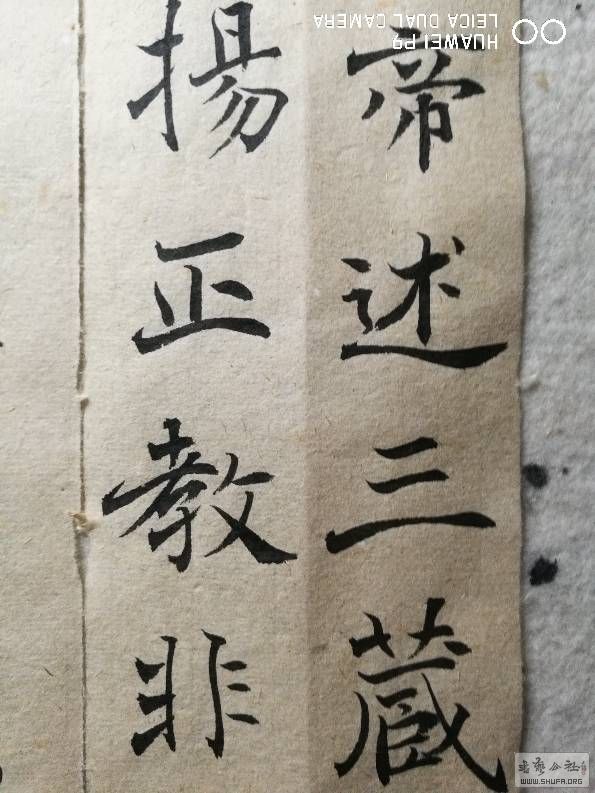 帝述三藏
揚正教非
HUAWEI P9
LEICA DUAL CAMERA
书艺公社
WWW.SHUFA.ORG